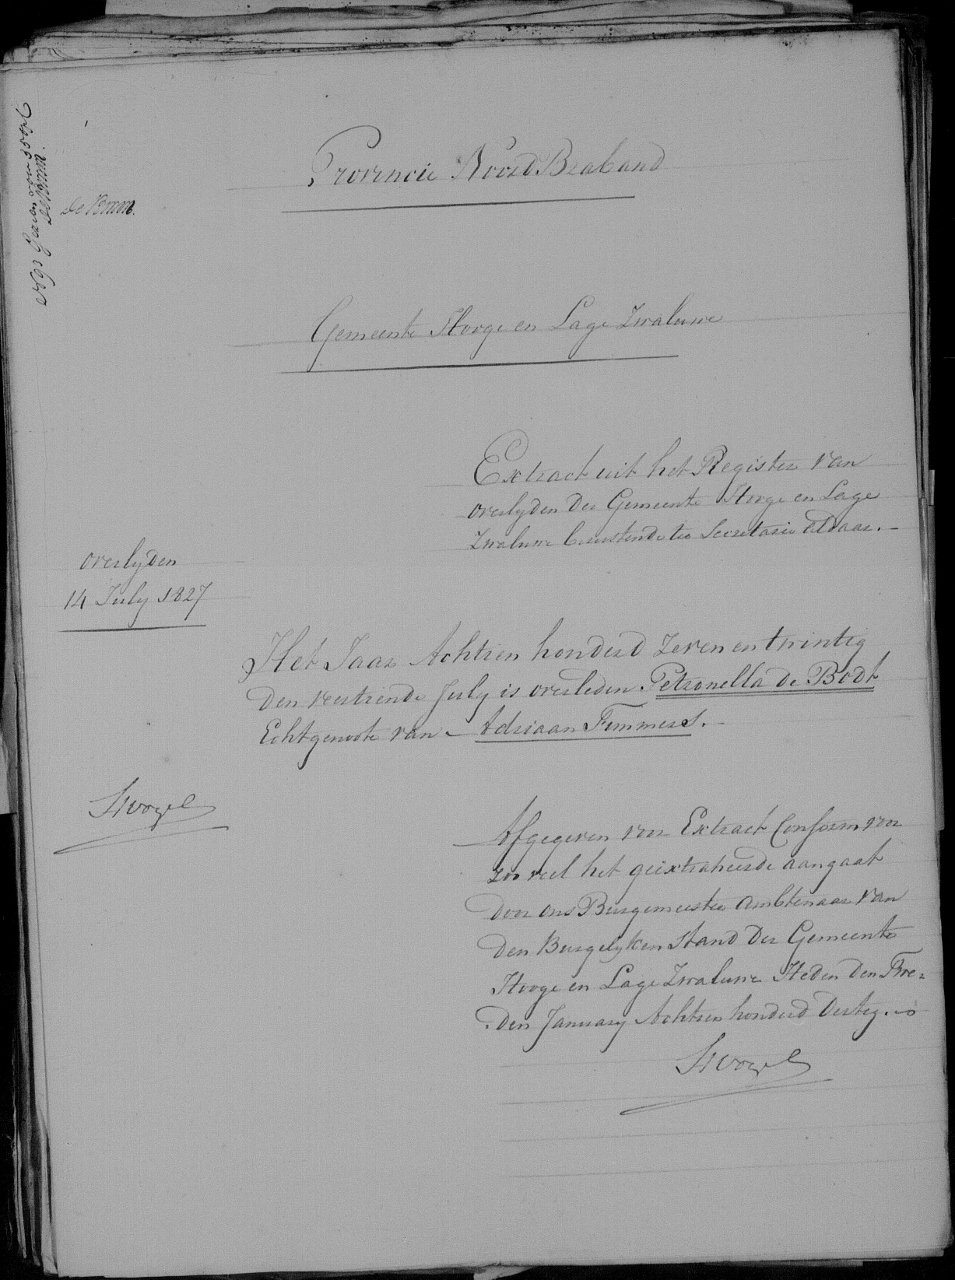 de Bruin.
Provincie Noord Braband
Gemeente Hooge en Lage Zwaluwe
Extract uit het Register van
overlyden der Gemeente Hooge en Lage
Zwaluwe berustende ter Secretarie aldaar. –
overlyden
14 July 1827
Het Jaar Achtien honderd zeven en twintig
den veertiende July is overleden Petronella de Bodt
Echtgenoote van – Adriaan Timmers. –
Afgegeven voor Extract Conform voor
zoo veel het geëxtraheerde aangaat
door ons Burgemeester Ambtenaar van
den Burgelyken Stand der Gemeente
Hooge en Lage Zwaluwe Heden den Twe-
den January Achtien honderd Dertig. –